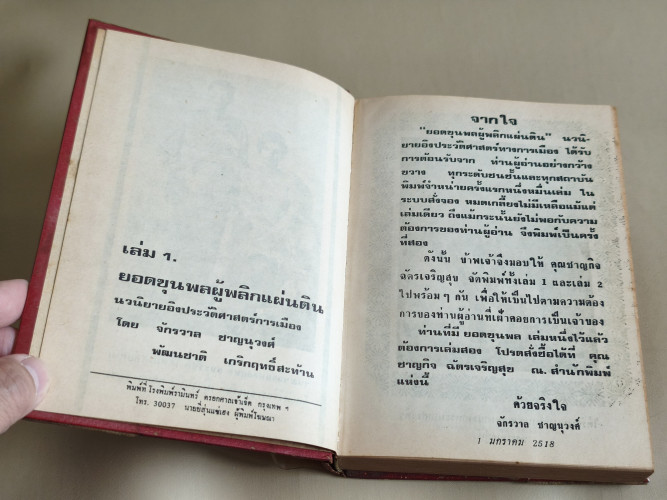 เล่ม 1.
ยอดขุนพลผู้พลิกแผ่นดิน
นวนิยายอิงประวัติศาสตร์การเมือง
โดย จักรวาล ชาญนุวงศ์
พัฒนชาติ เกริกฤทธิ์สะท้าน
พิมพ์ที่ โรงพิมพ์รามินทร์ ตรอกศาลเจ้าเจ็ด กรุงเทพ ฯ
โทร. 30037 นายยี่สุ่นแซ่เฮง ผู้พิมพ์โฆษณา
จากใจ
"ยอดขุนพลผู้พลิกแผ่นดิน" นวนิ-
ยายอิงประวัติศาสตร์ทางการเมือง ได้รับ
การต้อนรับจาก ท่านผู้อ่านอย่างกว้าง
ขวาง ทุกระดับชนชั้นและทุกสถาบัน
พิมพ์จำหน่ายครั้งแรกหนึ่งหมื่นเล่ม ใน
ระบบสั่งจอง หมดเกลี้ยงไม่มีเหลือแม้แต่
เล่มเดียว ถึงแม้กระนั้นยังไม่พอกับความ
ต้องการของท่านผู้อ่าน จึงพิมพ์เป็นครั้ง
ที่สอง
ดังนั้น ข้าพเจ้าจึงมอบให้ คุณชาญกิจ
ฉัตรเจริญสุข จัดพิมพ์ทั้งเล่ม 1 และเล่ม 2
ไปพร้อม ๆ กัน เพื่อให้เป็นไปตามความต้อง
การของท่านผู้อ่านที่เฝ้าคอยการเป็นเจ้าของ
ท่านที่มี ยอดขุนพล เล่มหนึ่งไว้แล้ว
ต้องการเล่มสอง โปรดสั่งซื้อได้ที่ คุณ
ชาญกิจ ฉัตรเจริญสุข ณ. สำนักพิมพ์
แห่งนี้
ด้วยจริงใจ
จักรวาล ชาญนุวงศ์
1 มกราคม 2518